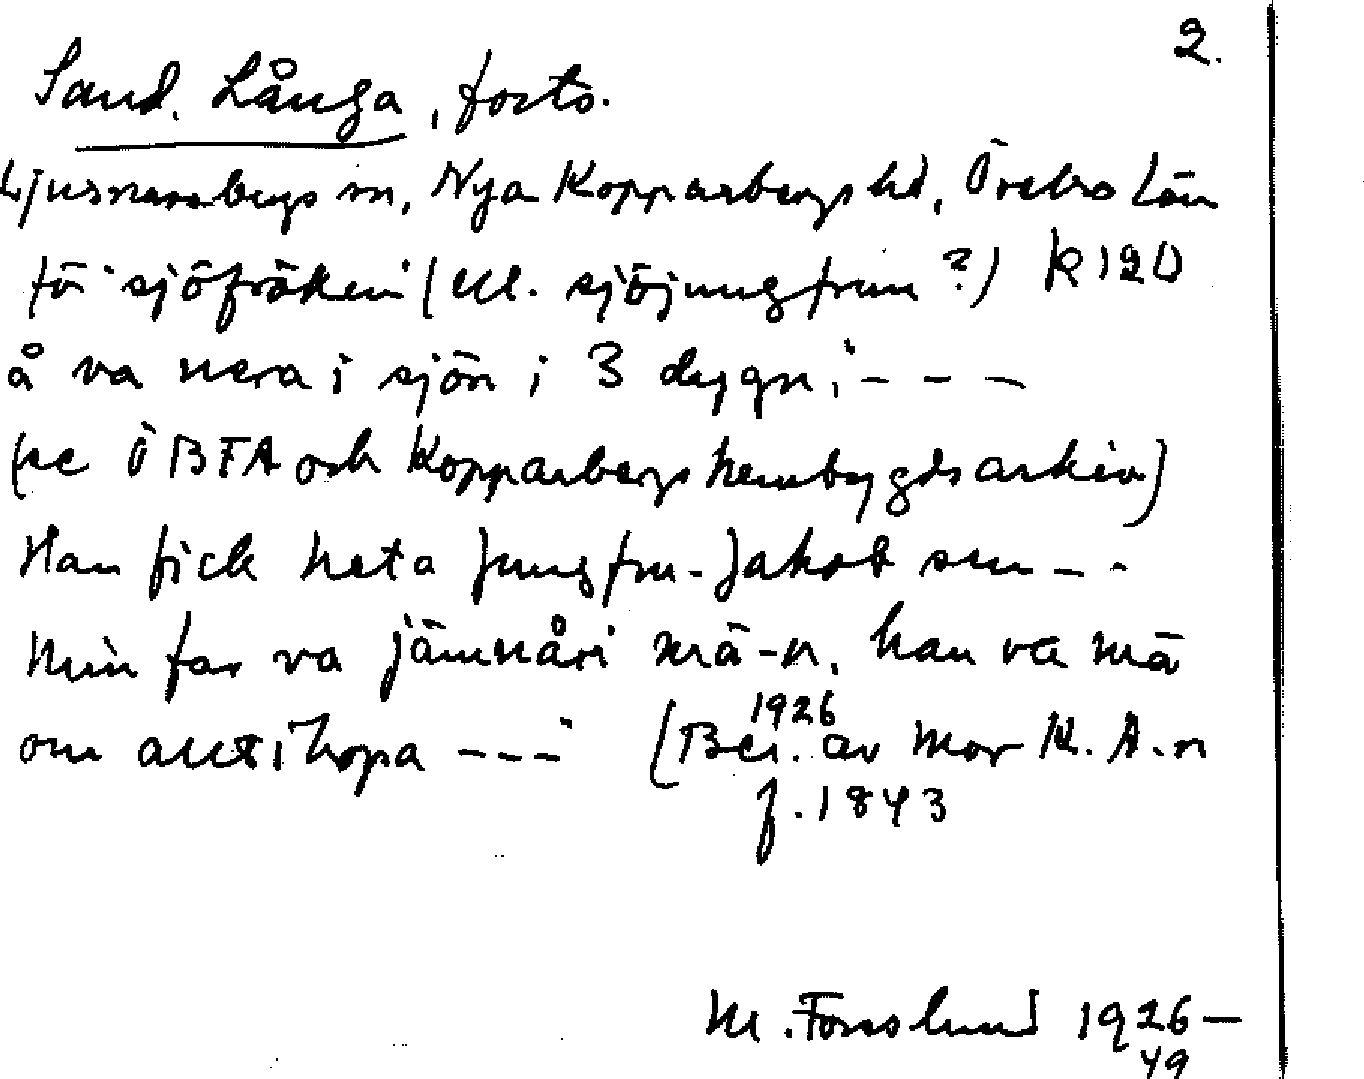 2.
Sand. Långa, forts.
Ljusnarsbergs sn, Nya Kopparbergs hd, Örebro län
fö sjöfröken (el. sjöjungfrun?) R 120
å va nera i sjön i 3 dygn, - - -
(se ÖBFA och Kopparbergs hembygdsarkiv)
Han fick heta Jungfru-Jakob sen - -
Min far va jämnåri mä-n, han va mä
om allt ihopa - - - (Ber. 1926 av Mor K. A-n
f. 1843
M. Forslund 1926-
49